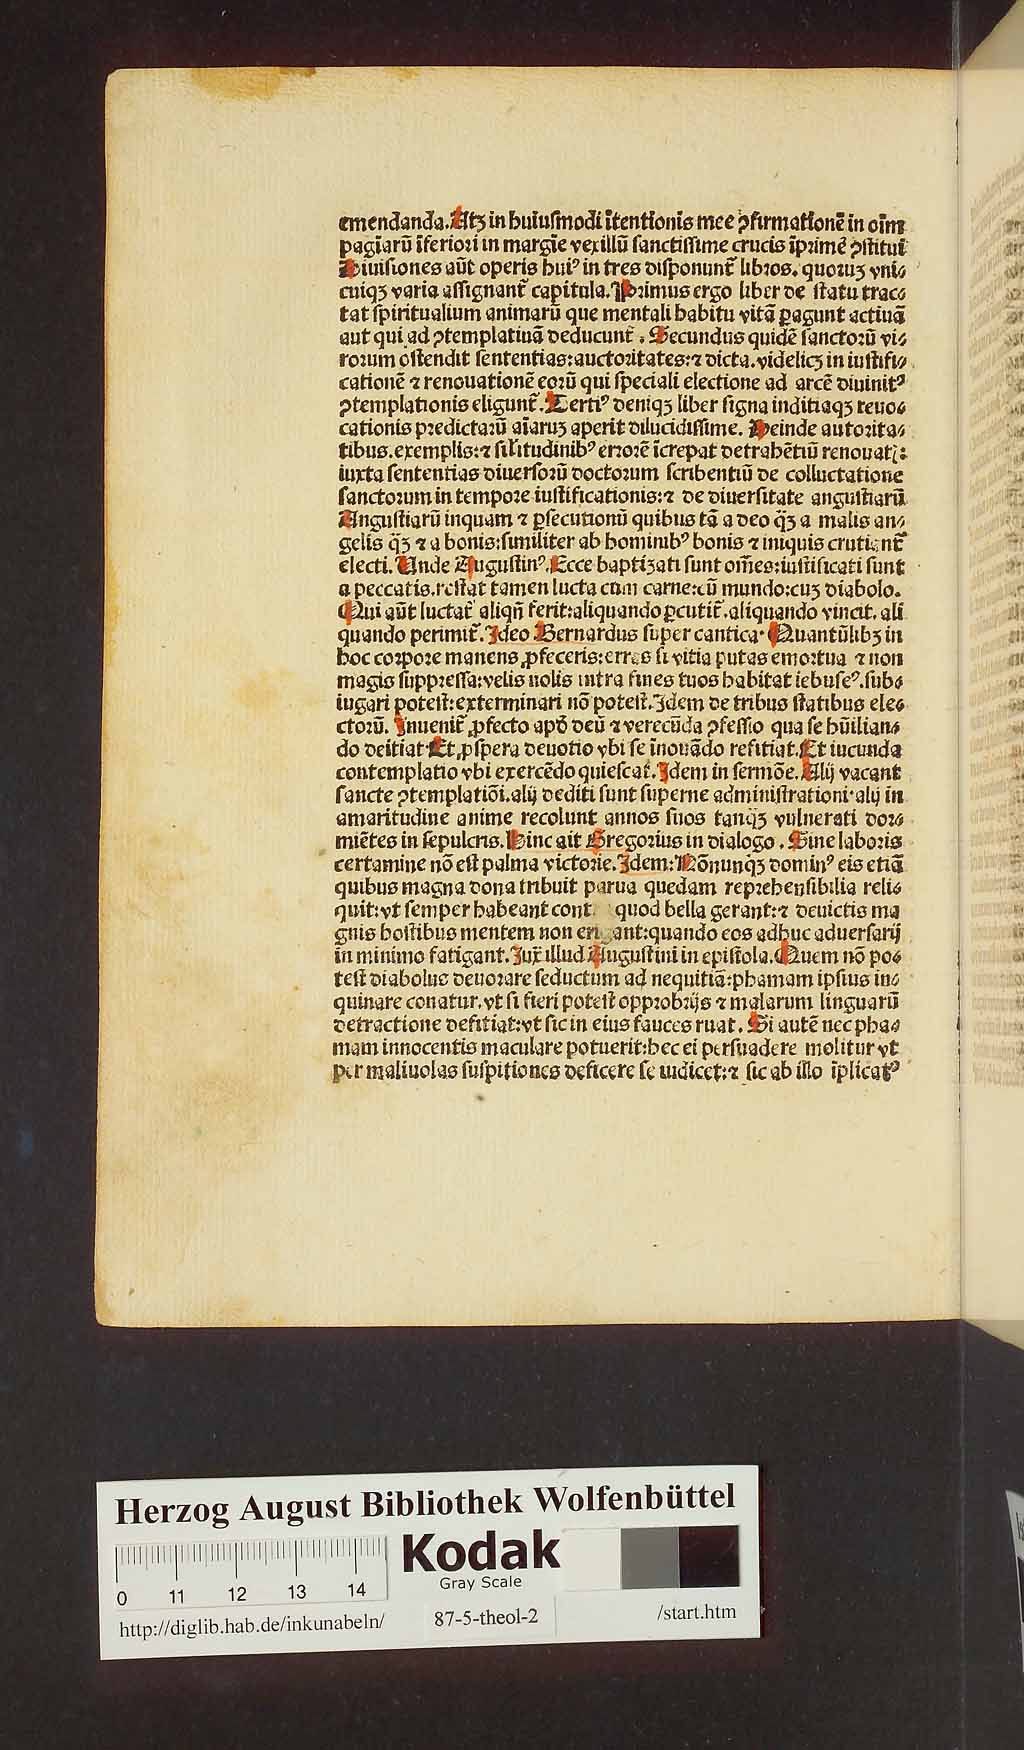 emendanda. Atqꝫ in huiusmodi ītentionis mee ꝯfirmationē in oīm
pagīarū īferiori in margīe vexillū sanctissime crucis īprimē ꝯstitui
Diuisiones aūt operis huiꝰ in tres disponunt̄ libros. quoruꝫ vni⸗
cuiqꝫ varia assignant̄ capitula. Primus ergo liber de statu trac⸗
tat spiritualium animarū que mentali habitu vitā ꝑagunt actiuā
aut qui ad ꝯtemplatiuā deducunt̄. Secundus quidē sanctorū vi⸗
rorum ostendit sententias: auctoritates: ⁊ dicta. videlicꝫ in iustifi⸗
cationē ⁊ renouationē eorū qui speciali electione ad arcē diuinitꝰ
ꝯtemplationis eligunt̄. Tertiꝰ deniqꝫ liber signa inditiaqꝫ reuo⸗
cationis predictarū aīaruꝫ aperit dilucidissime. Deinde autorita⸗
tibus. exemplis: ⁊ sil̄itudinibꝰ errorē īcrepat detrahētiū renouatꝭ:
iuxta sententias diuersorū doctorum scribentiū de colluctatione
sanctorum in tempore iustificationis: ⁊ de diuersitate angustiarū
Angustiarū inquam ⁊ ꝑsecutionū quibus tā a deo q̄ꝫ a malis an⸗
gelis q̄ꝫ ⁊ a bonis: similiter ab hominibꝰ bonis ⁊ iniquis crutiant̄
electi. Unde Augustinꝰ. Ecce baptizati sunt om̄es: iustificati sunt
a peccatis. restat tamen lucta cum carne: cū mundo: cuꝫ diabolo.
Qui aūt luctat̄ aliqn̄ ferit: aliquando ꝑcutit̄. aliquando vincit. ali
quando perimit̄. Ideo Bernardus super cantica. Quantūlibꝫ in
hoc corpore manens ꝓfeceris: erras si vitia putas emortua ⁊ non
magis suppressa: velis nolis intra fines tuos habitat iebuseꝰ. sub⸗
iugari potest: exterminari nō potest. Idem de tribus statibus ele⸗
ctorū. Inuenit̄ ꝓfecto apd̄ deū ⁊ verecūda ꝯfessio qua se hūilian⸗
do deitiat. Et ꝓspera deuotio vbi se īnouādo refitiat. Et iucunda
contemplatio vbi exercēdo quiescat̄. Idem in sermōe. Alij vacant
sancte ꝯtemplatiōi. alij dediti sunt superne administrationi. alij in
amaritudine anime recolunt annos suos tanqꝫ vulnerati dor⸗
miētes in sepulcris. Hinc ait Gregorius in dialogo. Sine laboris
certamine nō est palma victorie. Idem: Nōnunqꝫ dominꝰ eis etiā
quibus magna dona tribuit parua quedam reprehensibilia reli⸗
quit: vt semper habeant cont quod bella gerant: ⁊ deuictis ma
gnis hostibus mentem non erigant: quando eos adhuc aduersarij
in minimo fatigant. Jux̄ illud Augustini in epistola. Quem nō po⸗
test diabolus deuorare seductum ad nequitiā: phamam ipsius in⸗
quinare conatur. vt si fieri potest opprobrijs ⁊ malarum linguarū
detractione defitiat: vt sic in eius fauces ruat. Si autē nec pha⸗
mam innocentis maculare potuerit: hec ei persuadere molitur vt
per maliuolas suspitiones deficere se iudicet: ⁊ sic ab illo īplicatꝰ
Herzog August Bibliothek Wolfenbüttel
Kodak
Gray Scale
0 11 12 13 14
http://diglib.hab.de/inkunabeln/ 87-5-theol-2 /start.htm